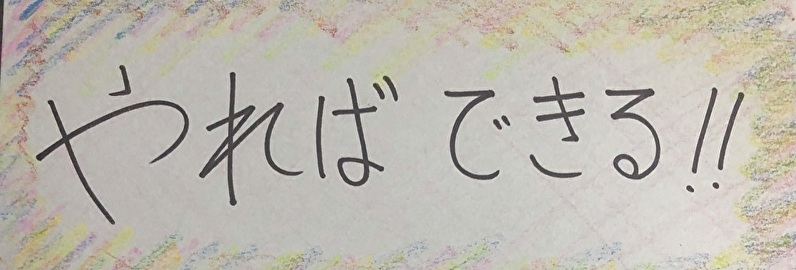 やれば できる!!